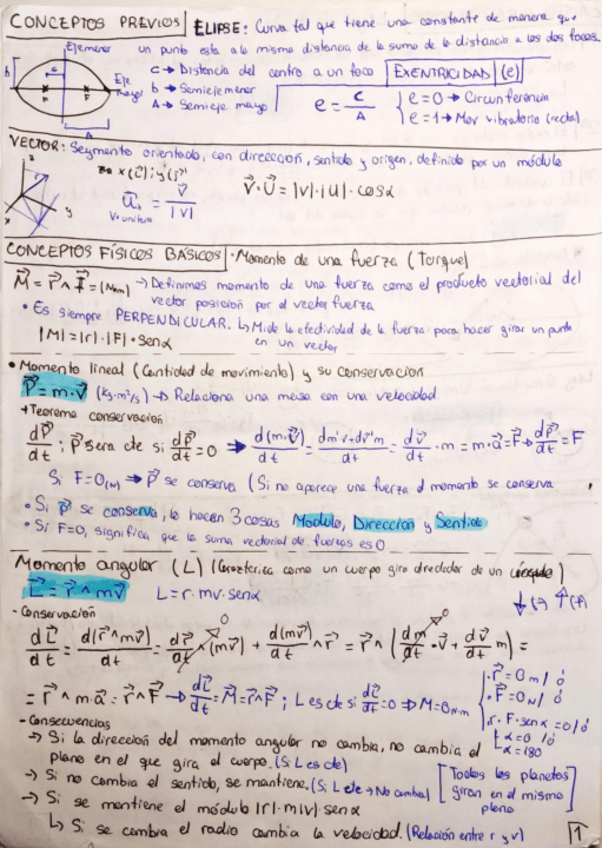 CONCEPTOS PREVIOS
ELIPSE: Curva tal que tiene una constante de manera que
un punto esta a la misma distancia de la suma de la distancia a los dos focos.
Eje menor
c → Distancia del centro a un foco
EXENTRICIDAD (e)
b
c
F
F
Eje mayor
b → Semieje menor
A → Semieje mayor
A
e = c/A { e=0 → Circunferencia
e=1 → Mov vibratorio (recta)
VECTOR: Segmento orientado, con direccion, sentido y origen, definido por un módulo
z
x
y
V. unitario
V⃗·U⃗ = |V|·|U|·cosα
CONCEPTOS FÍSICOS BÁSICOS
· Momento de una fuerza (Torque)
M⃗ = r⃗ ∧ F⃗ = (N·m) → Definimos momento de una fuerza como el producto vectorial del
vector posición por el vector fuerza
• Es siempre PERPENDICULAR. ↳ Mide la efectividad de la fuerza para hacer girar un punto
en un vector
|M| = |r|·|F|·senα
• Momento lineal (Cantidad de movimiento) y su conservacion
P⃗ = m·v⃗ (kg·m²/s) → Relaciona una masa con una velocidad
+ Teorema conservación
dP⃗/dt ; P⃗ sera cte si dP⃗/dt = 0 ⇒ d(m·v⃗)/dt = dm·v+dv⃗·m/dt = dv⃗/dt · m = m·a⃗ = F⃗ → dP⃗/dt = F
Si F=0(N) ⇒ P⃗ se conserva (Si no aparece una fuerza el momento se conserva
• Si P⃗ se conserva, lo hacen 3 cosas Modulo, Direccion y Sentido
• Si F=0, significa que la suma vectorial de fuerzas es 0
Momento angular (L) (Caracteriza como un cuerpo gira alrededor de un círculo)
L⃗ = r⃗ ∧ mv⃗ L = r·mv·senα
↓(-) ↑(+)
- Conservación
dL⃗/dt = d(r⃗∧mv⃗)/dt = dr⃗/dt ∧ (mv⃗) 0 + d(mv⃗)/dt ∧ r⃗ = r⃗ ∧ (dm/dt 0 · v⃗ + dv⃗/dt m) =
= r⃗ ∧ m·a⃗ = r⃗∧F⃗ → dL⃗/dt = M⃗ = r⃗∧F⃗ ; L es cte si dL⃗/dt = 0 ⇒ M=0N·m
· r⃗ = 0m / ó
· F⃗ = 0N / ó
· r·F·senα = 0 / ó
α=0 / ó
α=180
- Consecuencias
→ Si la dirección del momento angular no cambia, no cambia el
plano en el que gira el cuerpo. (Si L es cte)
→ Si no cambia el sentido, se mantiene. (Si L cte → No cambia)
[Todos los planetas
giran en el mismo
plano]
→ Si se mantiene el módulo |r|·m|v|·senα
↳ Si se cambia el radio cambia la velocidad. (Relación entre r y v)
1